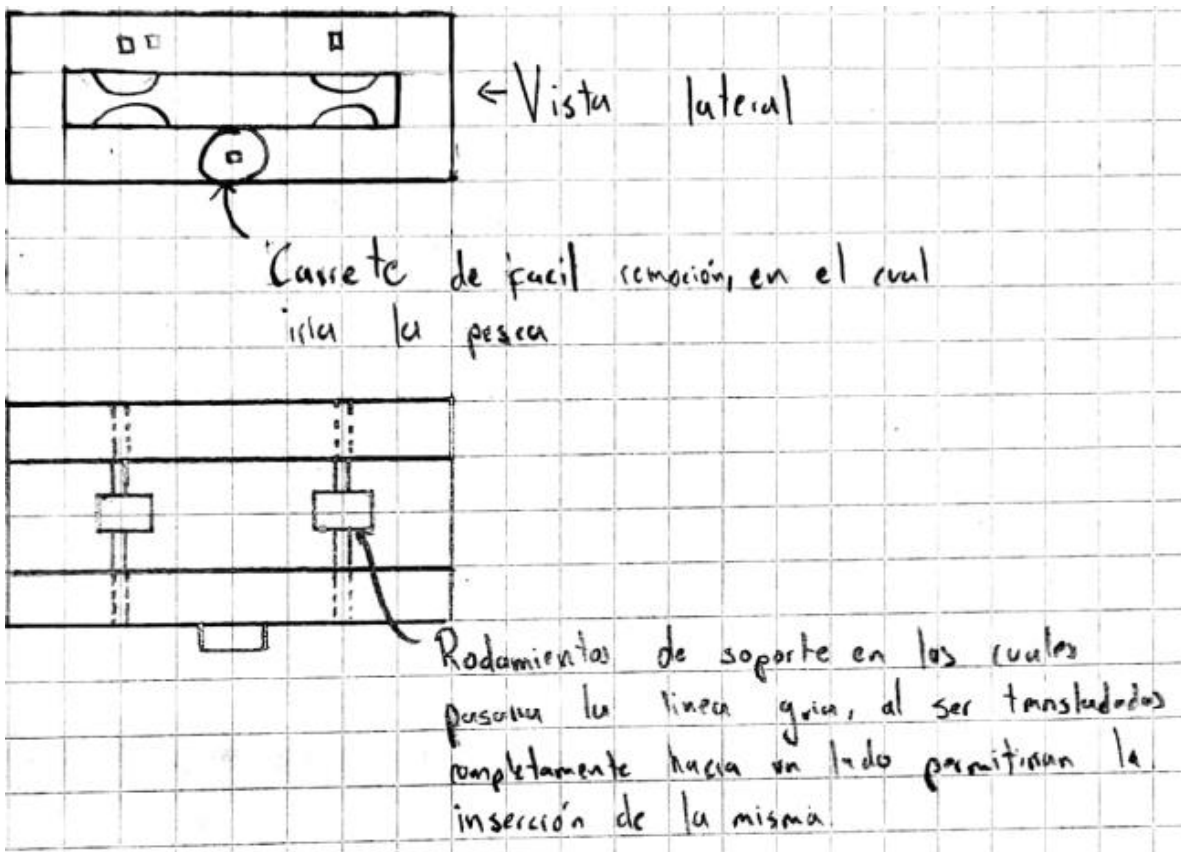 ← Vista lateral
Carrete de facil remoción, en el cual
iria la pesca
Rodamientos de soporte en los cuales
pasaria la linea guia, al ser transladados
completamente hacia un lado permitirian la
inserción de la misma.